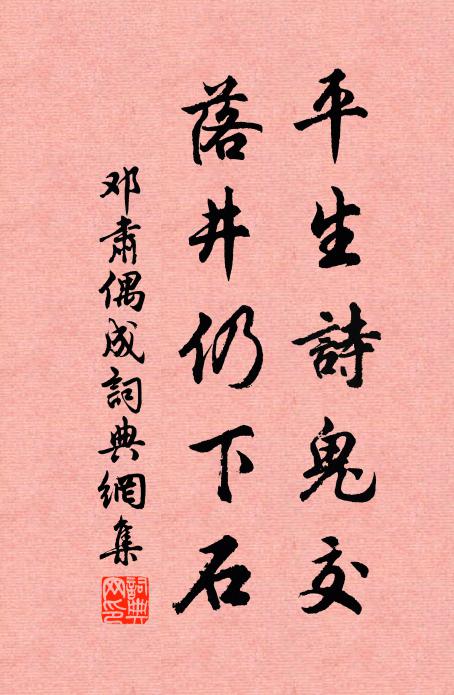 平生詩鬼交
落井仍下石
邓肅偶成詞典網集
詞典網印